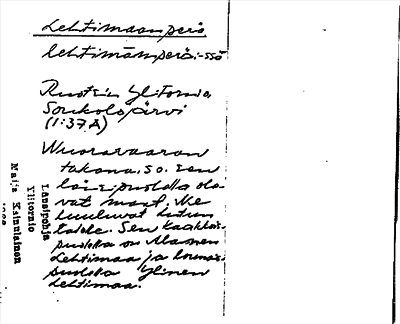 Lehtimaanperä
lehtimãmperä:-ssä
Ruotsin Ylitornio
Soukolojärvi
(1:37A)
Vuorovaaran
takana, s.o. sen
länsipuolella ole-
vat maat. Ne
kuuluvat
taloon. Sen kaakkois-
puolella on Alanen
Lehtimaa ja
puolella Ylinen
Lehtimaa.
Länsipohja
Ylitornio
Maija Keinulainen